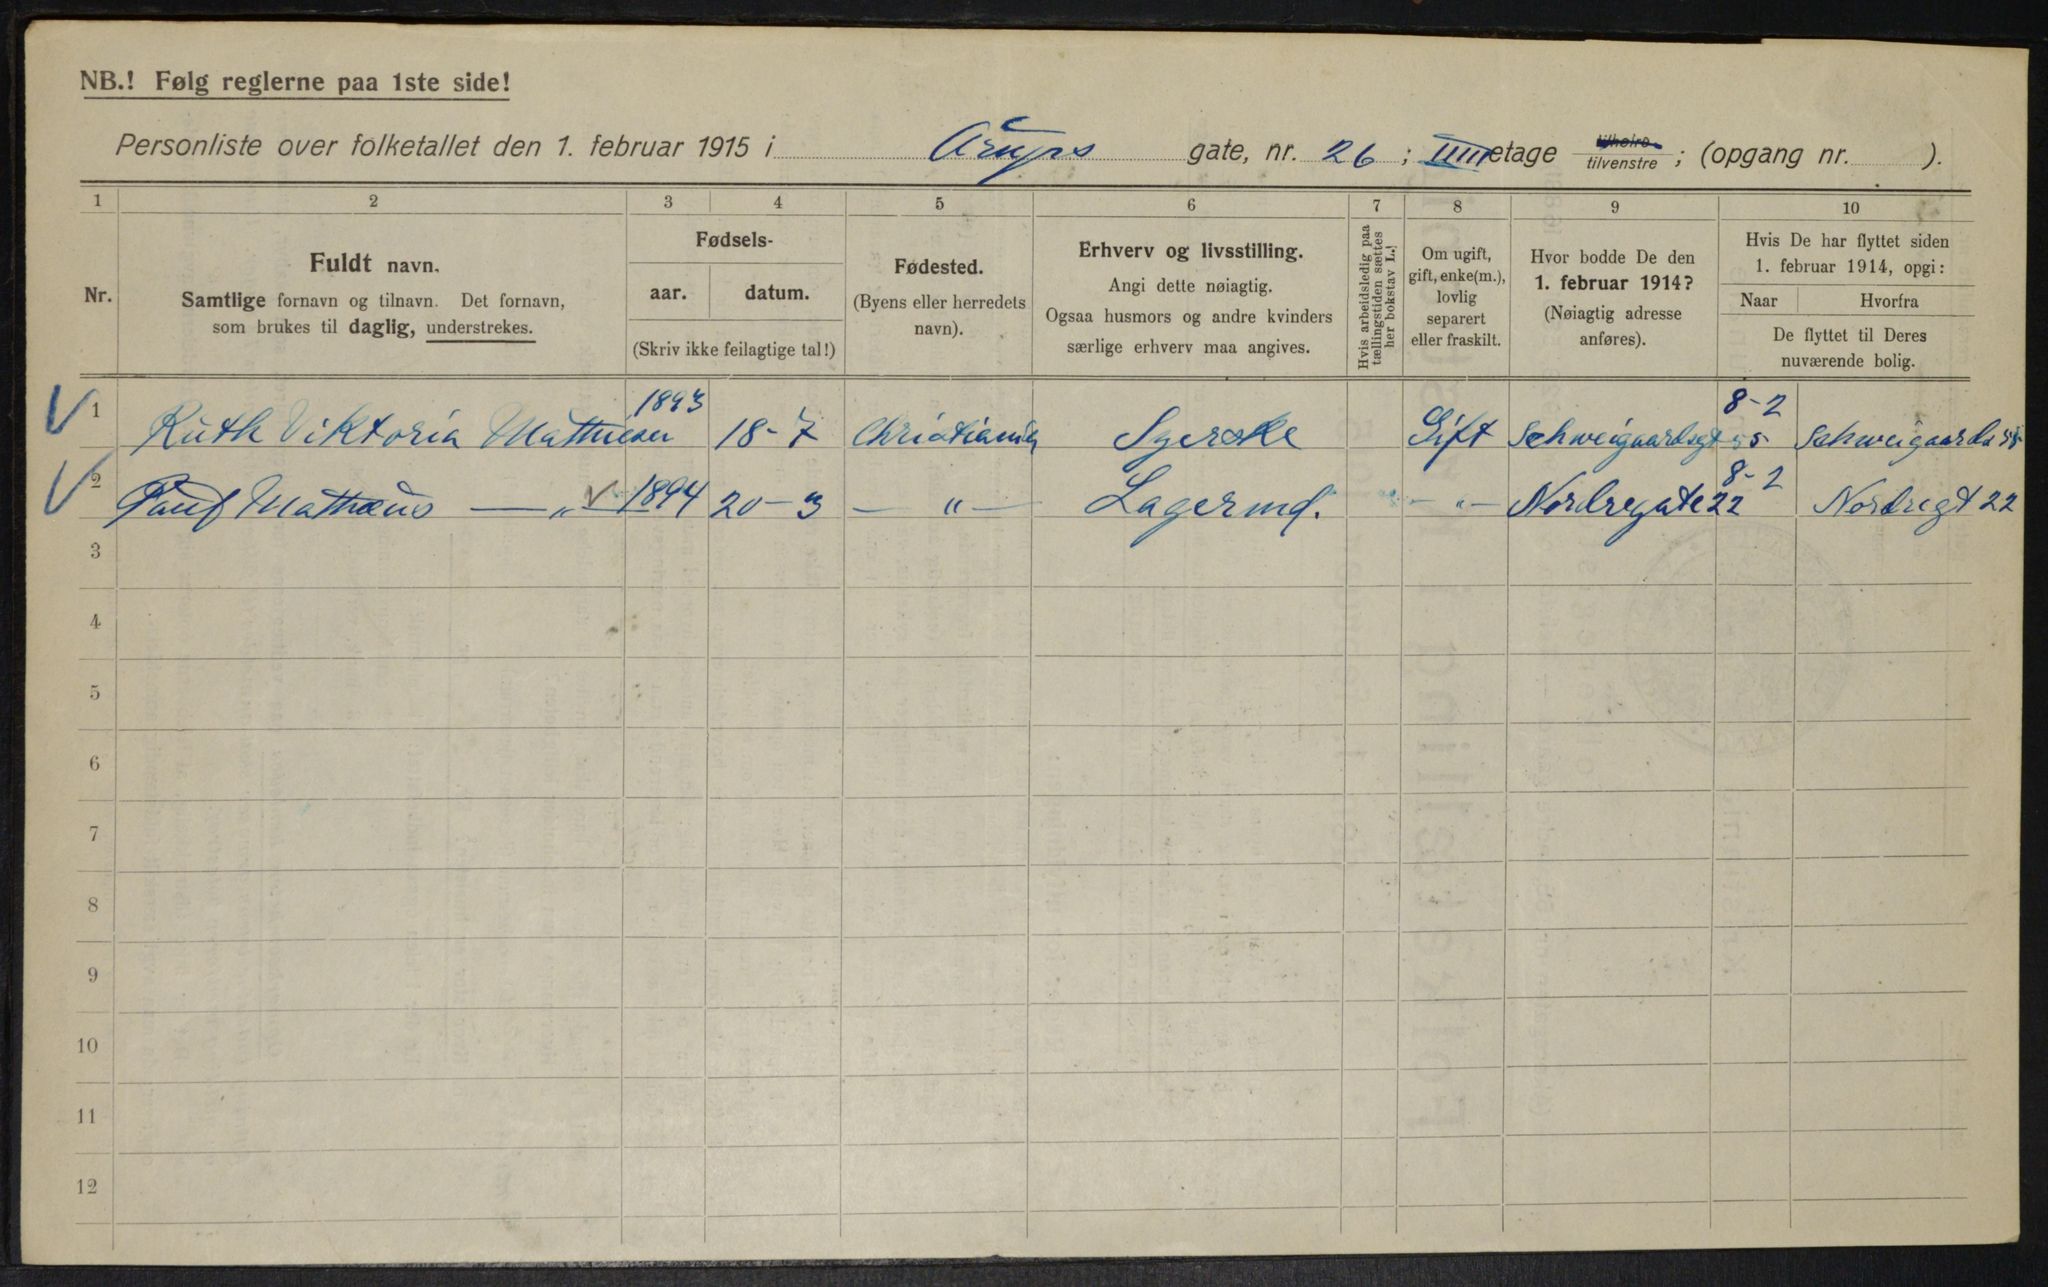 NB.! Følg reglerne paa 1ste side!
Personliste over folketallet den 1. februar 1915 i Arups gate, nr. 26 ; IIII etage tilhøire / tilvenstre ; (opgang nr. ).
1 2 3 4 5 6 7 8 9 10
Nr.
Fuldt navn.
Samtlige fornavn og tilnavn. Det fornavn,
som brukes til daglig, understrekes.
Fødsels-
aar. datum.
(Skriv ikke feilagtige tal!)
Fødested.
(Byens eller herredets
navn).
Erhverv og livsstilling.
Angi dette nøiagtig.
Ogsaa husmors og andre kvinders
særlige erhverv maa angives.
Hvis arbeidsledig paa
tællingstiden sættes
her bokstav L.!
Om ugift,
gift, enke(m.),
lovlig
separert
eller fraskilt.
Hvor bodde De den
1. februar 1914?
(Nøiagtig adresse
anføres).
Hvis De har flyttet siden
1. februar 1914, opgi:
Naar Hvorfra
De flyttet til Deres
nuværende bolig.
1 Ruth Viktoria Mathiesen 1893 18-7 Christiania Syerske Gift Schweigaardsgt 55 8-2 Schweigaards 55
2 Paul Mathæus — „ — 1894 20-3 — „ — Lagermd. — „ — Nordregate 22 8-2 Nordregt 22
3
4
5
6
7
8
9
10
11
12